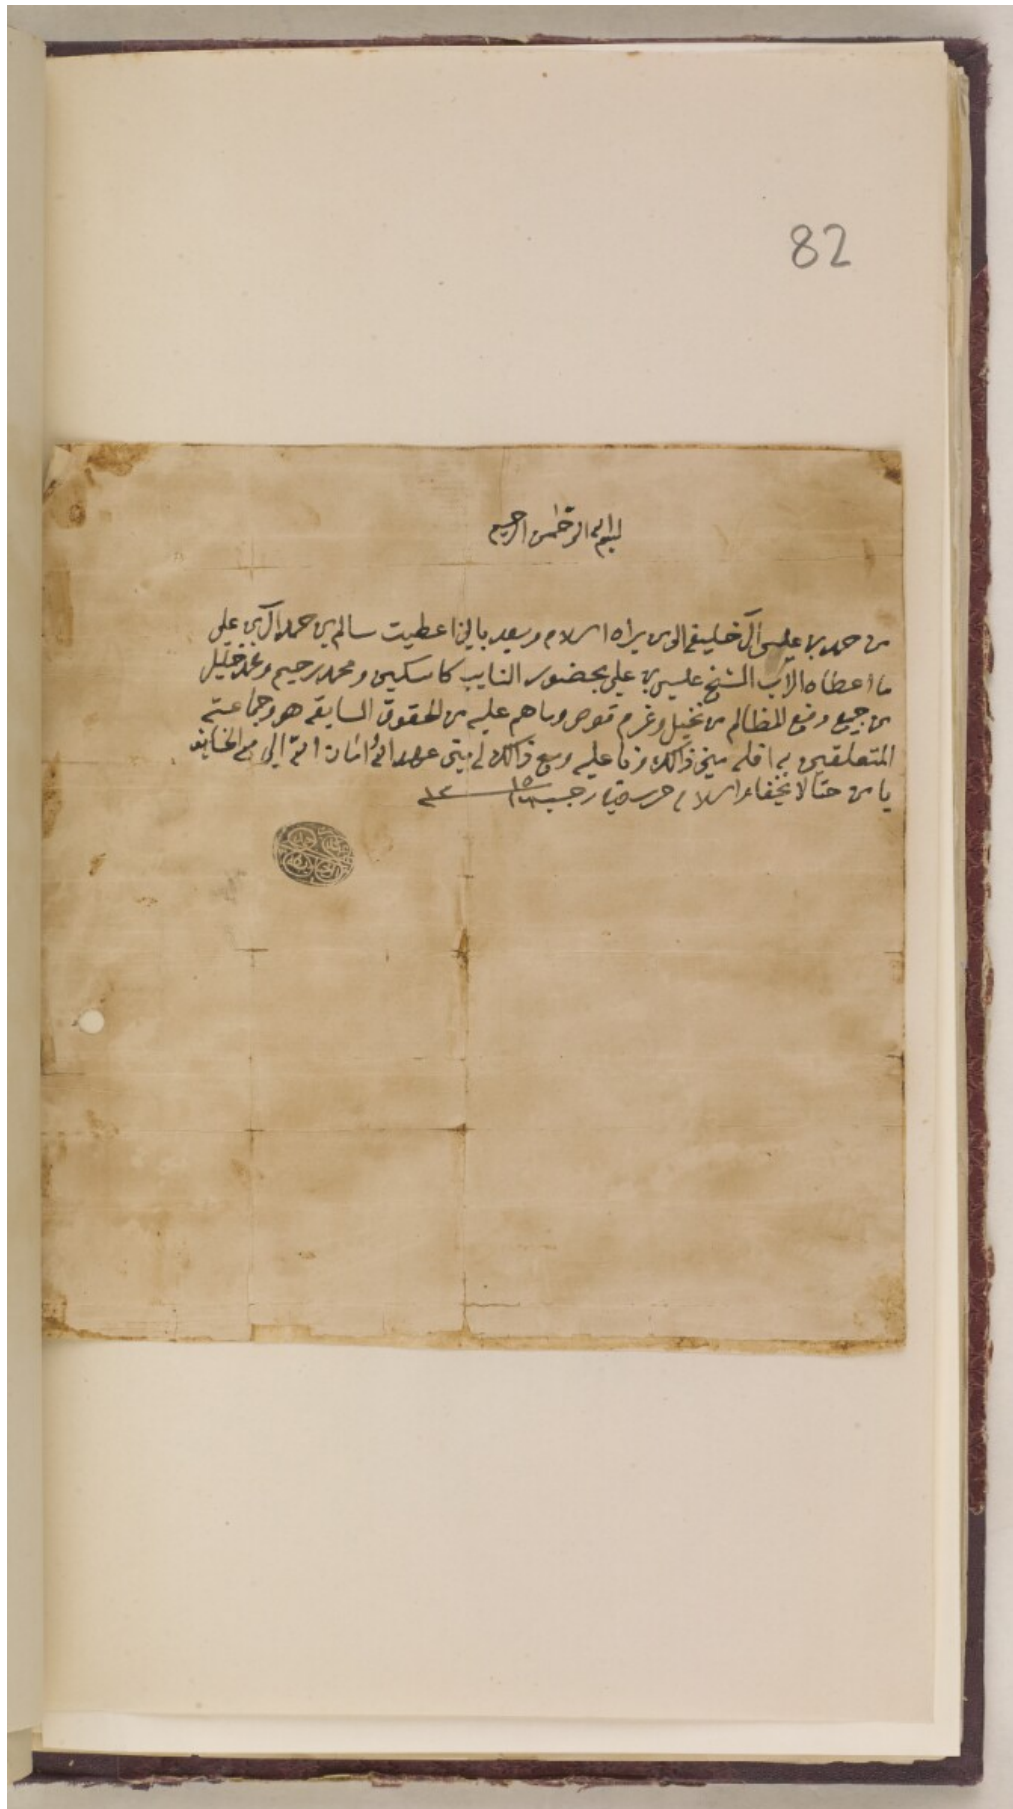 82
بسم الله الرحمن الرحيم
من حمد بن عيسى آل خليفه الى من يراه السلام وبعد باني اعطيت سالم بن حمد آل بن علي
ما اعطاه الأب الشيخ عيسى بن علي بحضور النايب كاسكين ومحمد رحيم ومحمد خليل
من جميع رفع المظالم من نخيل وغرم قوص وماهم عليه من الحقوق السابقه هو وجماعته
المتعلقين به افله ميني ذالك وفا عليه ومع ذالك له ميني عهد الله وامان الله
يا من حتا لا يخفا والسلام حرر في رجب